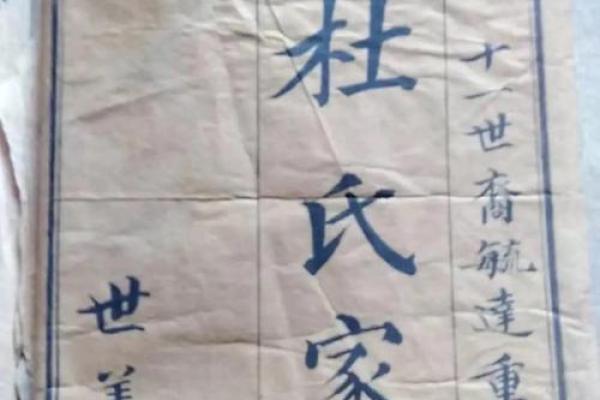 十一世裔毓達重
杜氏家
世美